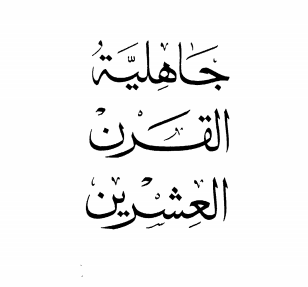 جَاهِليَّةُ
القَرن
العِشْرين